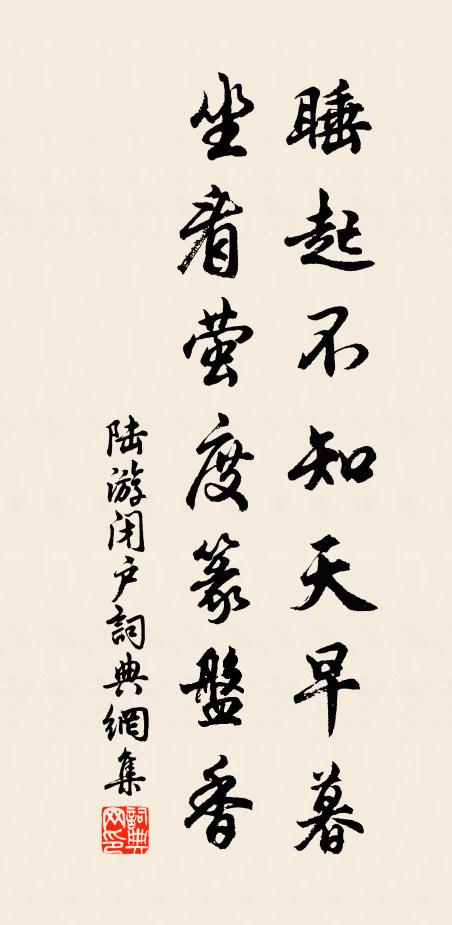 睡起不知天早暮
坐看萤度篆盤香
陆游闭户詞典網集
詞典网印